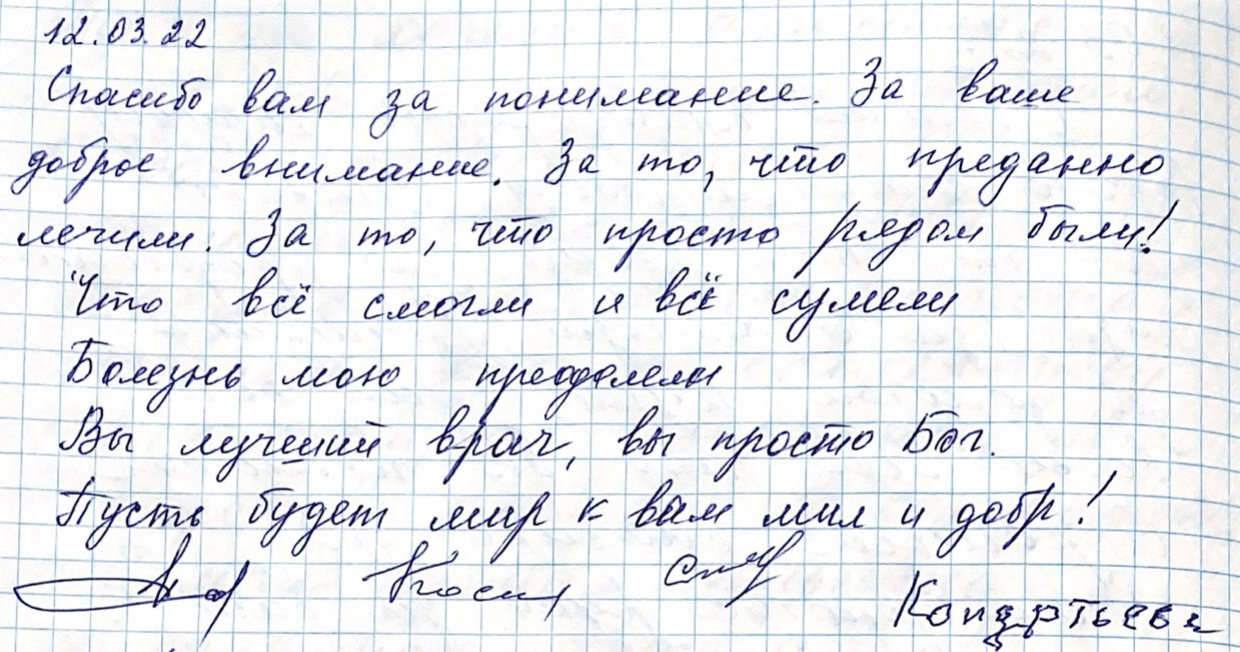 12.03.22
Спасибо вам за понимание. За ваше
доброе внимание. За то, что преданно
лечили. За то, что просто рядом были!
Что всё смогли и всё сумели
Болезнь мою преодолели
Вы лучший врач, вы просто Бог.
Пусть будет мир к вам мил и добр!